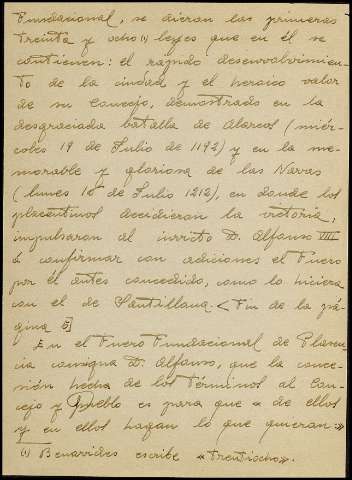 Fundacional, se dieran las primeras
treinta y ocho (1) leyes que en él se
contienen: el rápido desenvolvimien-
to de la ciudad y el heroico valor
de su Concejo, demostrado en la
desgraciada batalla de Alarcos (miér-
coles 19 de Julio de 1192) y en la me-
morable y gloriosa de las Navas
(lunes 16 de Julio 1212), en donde los
placentinos decidieran la victoria,
impulsaron al invicto D. Alfonso VIII
á confirmar con adiciones el Fuero
por él antes concedido, como lo hiciera
con el de Santillana. < Fin de la pá-
gina 5]
En el Fuero Fundacional de Plasen-
cia consigna D. Alfonso, que la conce-
sión hecha de los términos al Con-
cejo y Pueblo es para que « de ellos
y en ellos hagan lo que quieran: »
(1) Benavides escribe « treutiocho ».